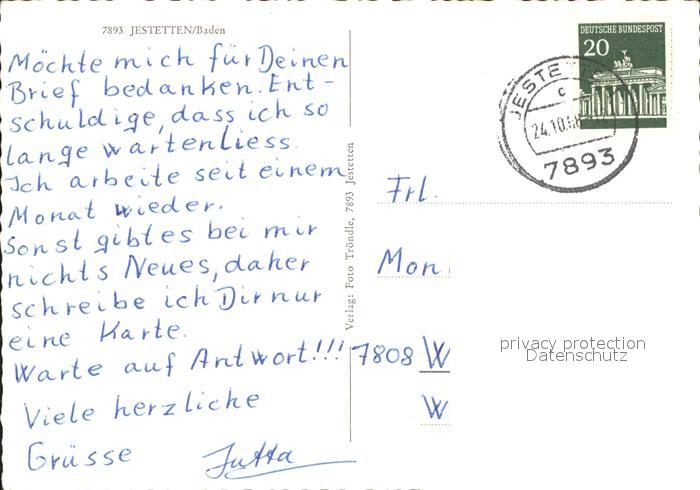 7893 JESTETTEN/Baden
Möchte mich für Deinen
Brief bedanken. Ent-
schuldige, dass ich so
lange warten liess.
Ich arbeite seit einem
Monat wieder.
Sonst gibt es bei mir
nichts Neues, daher
schreibe ich Dir nur
eine Karte.
Warte auf Antwort!!!
Viele herzliche
Grüsse Jutta
Verlag: Foto Tröndle, 7893 Jestetten
DEUTSCHE BUNDESPOST
20
c
24.10.68
7893
Frl.
Mon
7808 W
W
privacy protection
Datenschutz